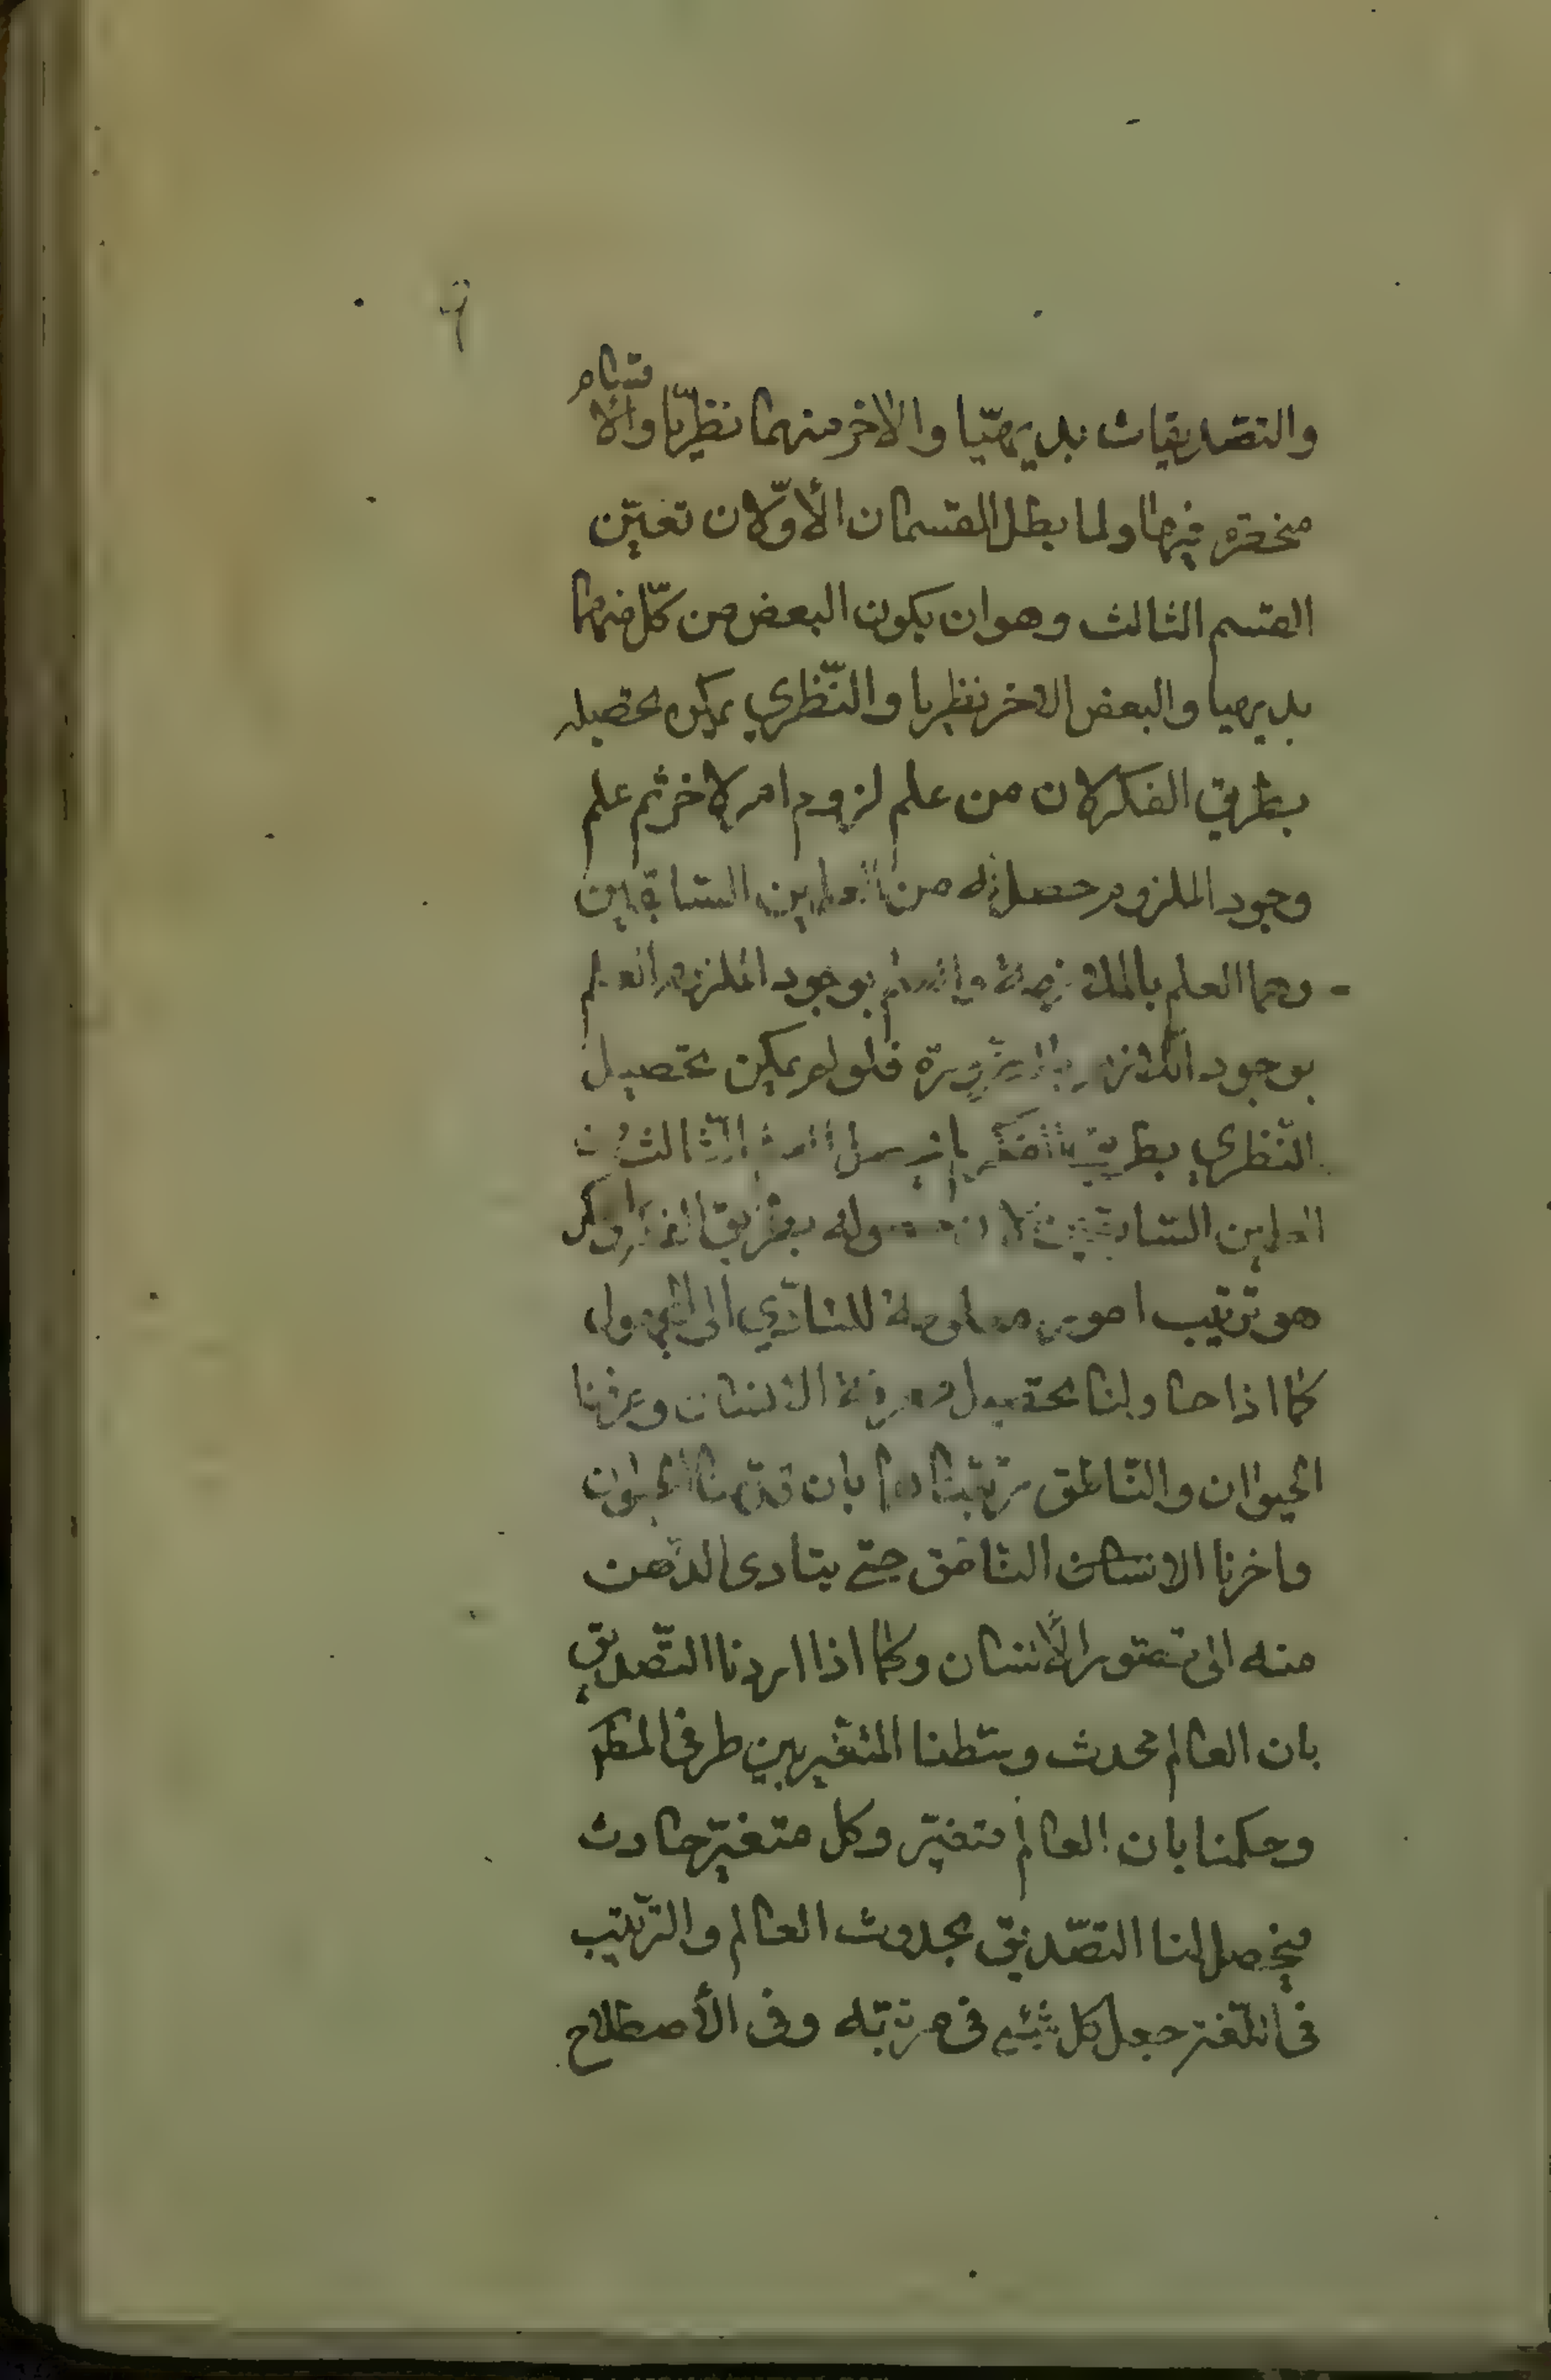 ٩
والتصديقات بديهيّا والاخر منهما نظريّا والاقسام
منحصرة فيها ولما بطل القسمان الأوّلان تعيّن
القسم الثالث وهو ان يكون البعض من كلّ منهما
بديهيا والبعض الاخر نظريا والنّظري يمكن تحصيله
بطريق الفكر لان من علم لزوم امر لاخر ثم علم
وجود الملزوم حصل له من العلمين السّابقين
وهما العلم بالملازمة والعلم بوجود الملزوم العلم
بوجود اللازم بالضّرورة فلو لم يمكن تحصيل
النّظري بطريق الفكر لم يحصل العلم الثّالث من
العلمين السّابقين لان حصوله بطريق الفكر والفكر
هو ترتيب امور معلومة للتّأدّي الى المجهول
كما اذا حاولنا تحصيل معرفة الانسان وعرفنا
الحيوان والنّاطق رتّبناهما بان قدّمنا الحيوان
واخرنا الانسان الناطق حتى يتادى الذّهن
منه الى تصّور الأنسان وكما اذا اردنا التّصديق
بان العالم محدث وسّطنا المتغّير بين طرفى المط
وحكمنا بان العالم متغيّر وكل متغيّر حادث
فيحصل لنا التصّديق بحدوث العالم والترّتيب
فى اللّغة جعل كل شئ فى مرتبته وفى الأصطلاح